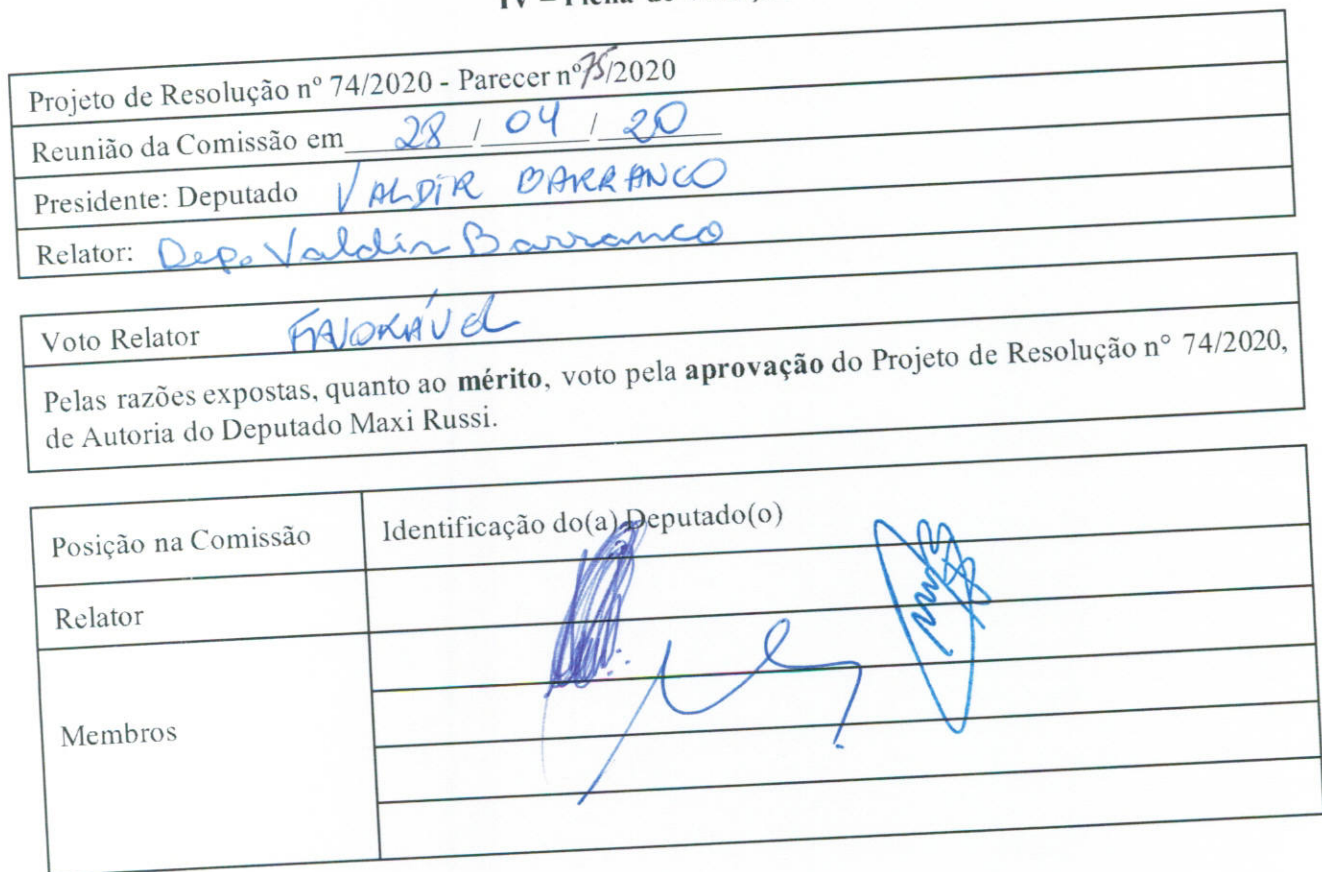 IV – Ficha de
Projeto de Resolução nº 74/2020 - Parecer nº 75/2020
Reunião da Comissão em 28 / 04 / 20
Presidente: Deputado VALDIR BARRANCO
Relator: Dep. Valdir Barranco
Voto Relator FAVORÁVEL
Pelas razões expostas, quanto ao mérito, voto pela aprovação do Projeto de Resolução n° 74/2020,
de Autoria do Deputado Maxi Russi.
Posição na Comissão
Identificação do(a) Deputado(o)
Relator
Membros